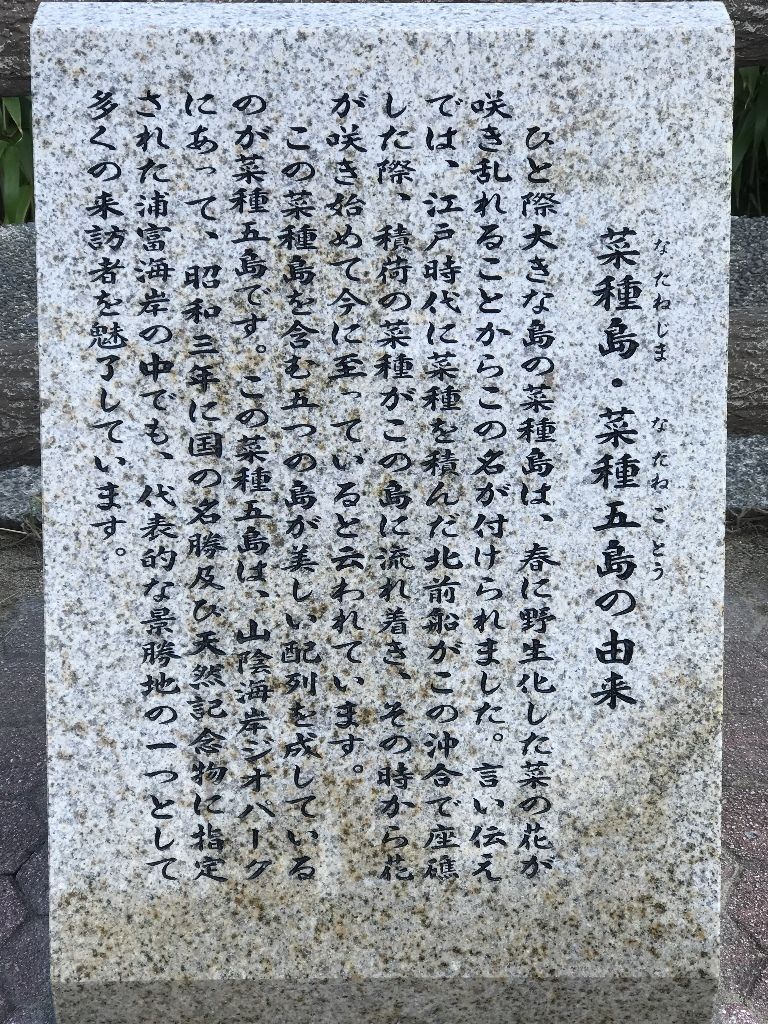 なたねじま なたねごとう
菜種島・菜種五島の由来
ひと際大きな島の菜種島は、春に野生化した菜の花が
咲き乱れることからこの名が付けられました。言い伝え
では、江戸時代に菜種を積んだ北前船がこの沖合で座礁
した際、積荷の菜種がこの島に流れ着き、その時から花
が咲き始めて今に至っていると云われています。
この菜種島を含む五つの島が美しい配列を成している
のが菜種五島です。この菜種五島は、山陰海岸ジオパーク
にあって、昭和三年に国の名勝及び天然記念物に指定
された浦富海岸の中でも、代表的な景勝地の一つとして
多くの来訪者を魅了しています。